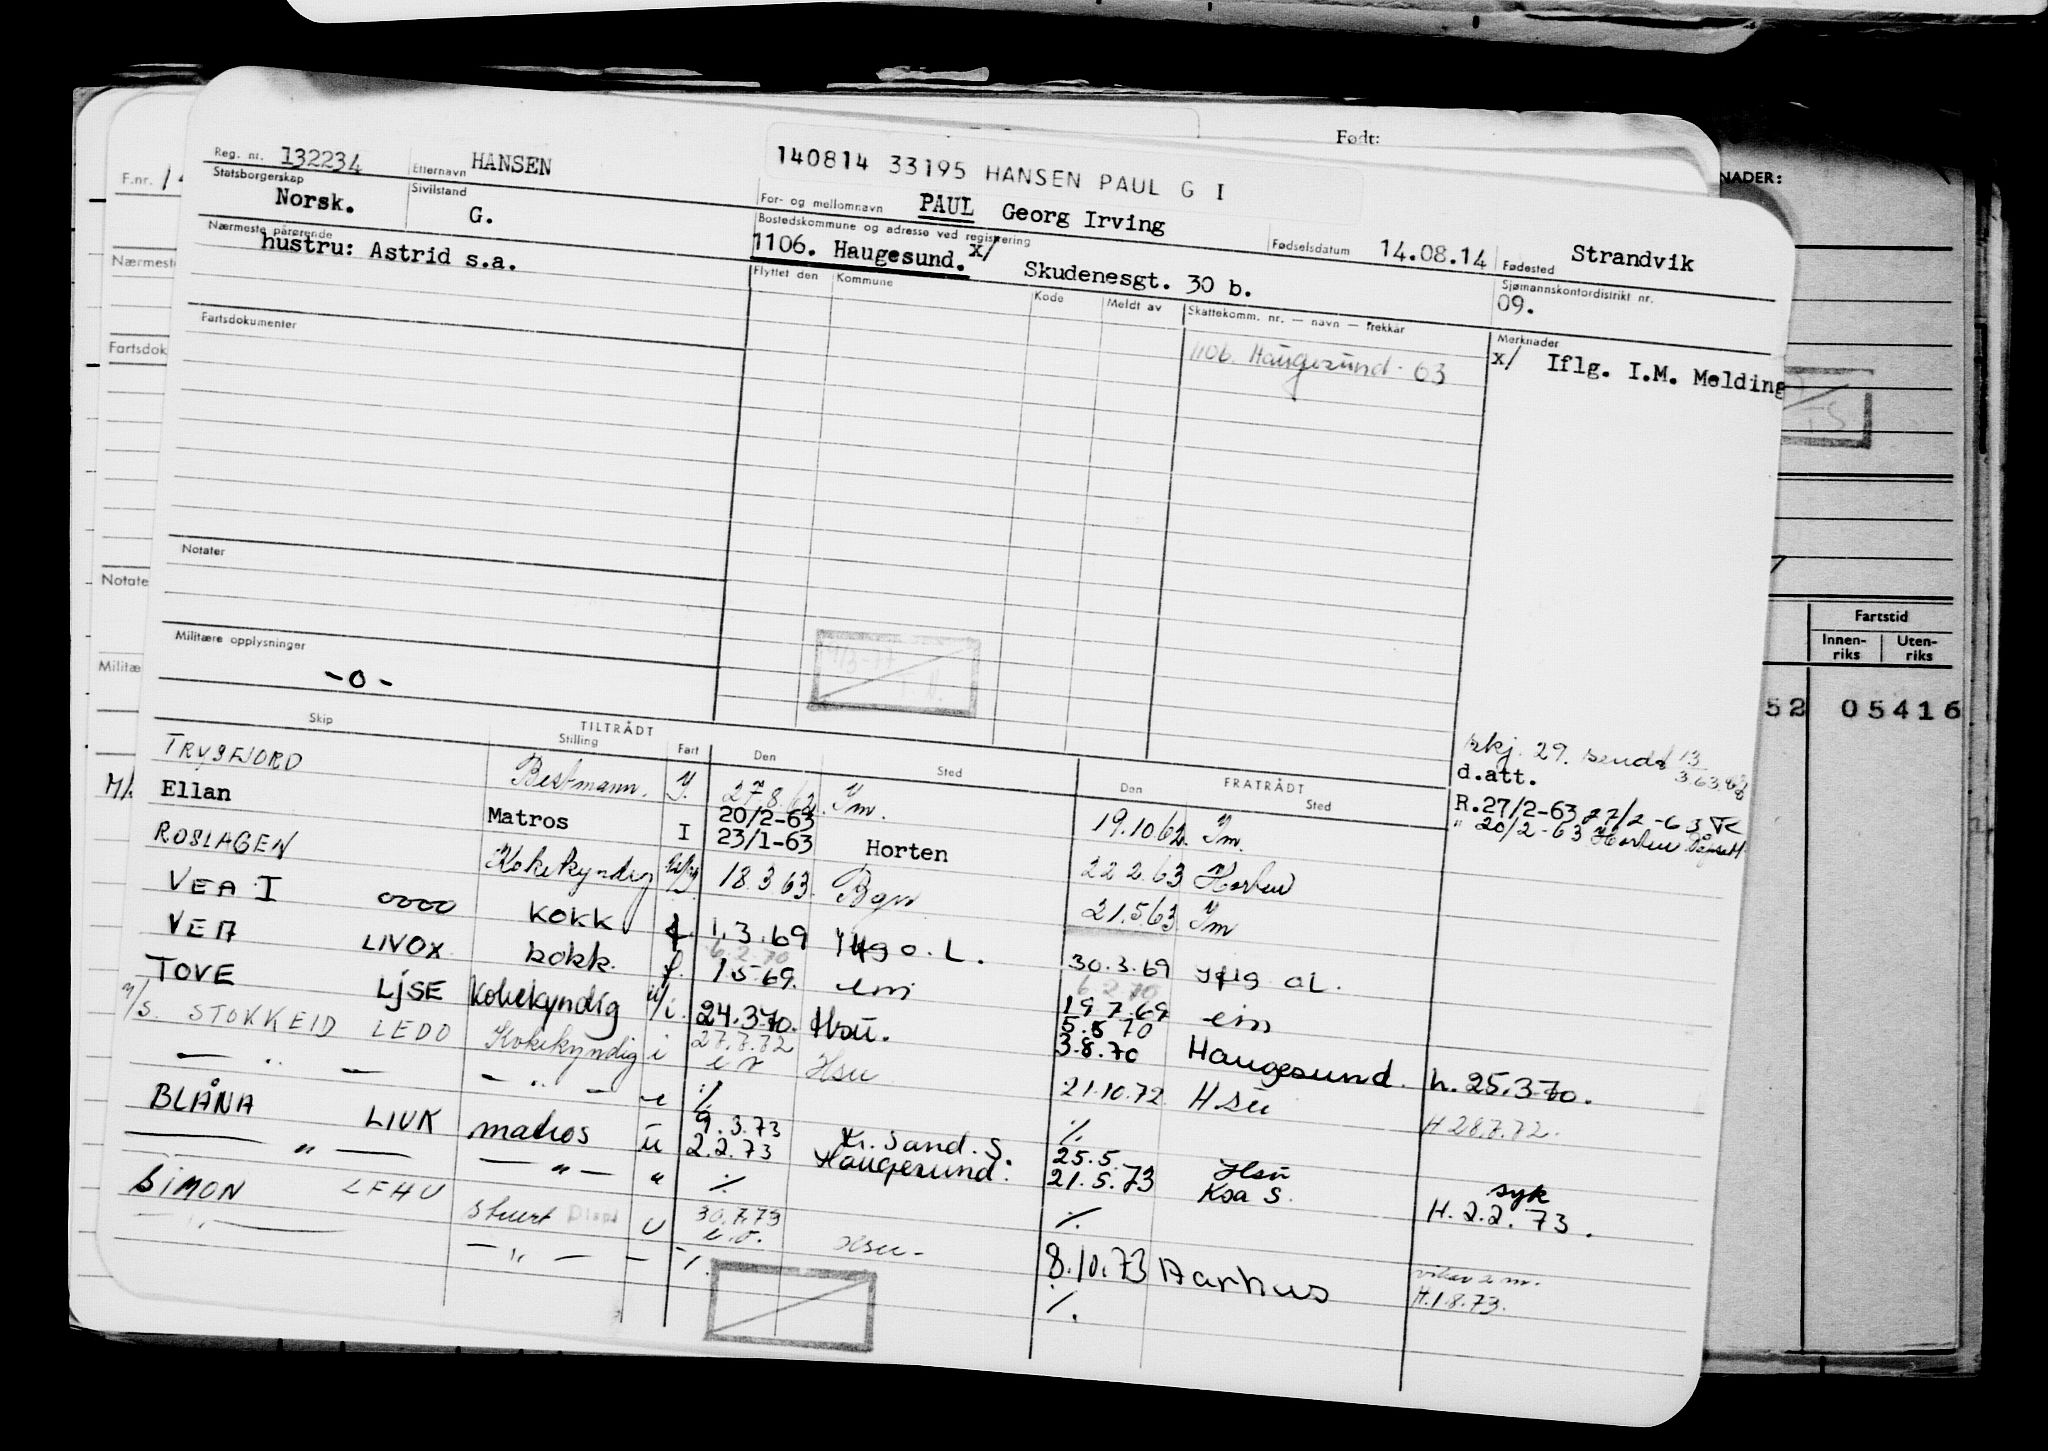 Født:
140814 33195 HANSEN PAUL G I
Reg. nr. 132234 Etternavn HANSEN For- og mellomnavn PAUL Georg Irving Fødselsdatum 14.08.14 Fødested Strandvik
Statsborgerskap Norsk. Sivilstand G. Bostedskommune og adresse ved registrering 1106. Haugesund. x/ Skudenesgt. 30 b. Sjømannskontordistrikt nr. 09.
Nærmeste pårørende hustru: Astrid s.a.
Flyttet den Kommune Kode Meldt av Skattekomm. nr. — navn — trekkår Merknader
1106. Haugesund. 63 x/ Iflg. I.M. Melding
Fartsdokumenter
Notater
Militære opplysninger
-o-
F.nr.
Nærmest
Fartsdok
Notate
Militæ
NADER:
Fartstid
Innen-riks Uten-riks
52 05416
skj. 29. sendt 13/3.63.
d.att.
Skip TILTRÅDT Stilling Fart Den Sted FRATRÅDT Den Sted
TRYSFJORD Bestmann. 27.8.62. Ym. 19.10.62. Ym. R.27/2-63 27/2-63
M/. Ellan Matros I 20/2-63 23/1-63 Horten 22.2.63 Horten " 20/2-63 Horten
ROSLAGEN Kokekyndig 18.3.63. Bgn 21.5.63. Ym
VEA I oooo kokk f. 1.3.69 o.L. 30.3.69 oL.
VEA LIVOX kokk. f. 6.2.70 1.5.69. em 6.2.70 19.7.69 em
TOVE LJSE kokekyndig u/i. 24.3.70. Hsu. 5.8.70 3.8.70 Haugesund. h. 25.3.70.
M/S. STOKKEID LEDO Kokekyndig i 27.7.72 Hsu 21.10.72 Hsu H 28.7.72.
— " — — " — ·/. ·/.
BLÅNA LIUK matros u 9.3.73 2.2.73 Kr.sand.S. Haugesund. 25.5. 21.5.73 Hsu Ksa S. syk H. 2.2.73.
— " — — " — " ·/. ·/.
SIMON LFHU stuert U 30.7.73 Hsu- 8.10.73 Aarhus H.1.8.73.
— " — — " — ·/. ·/.